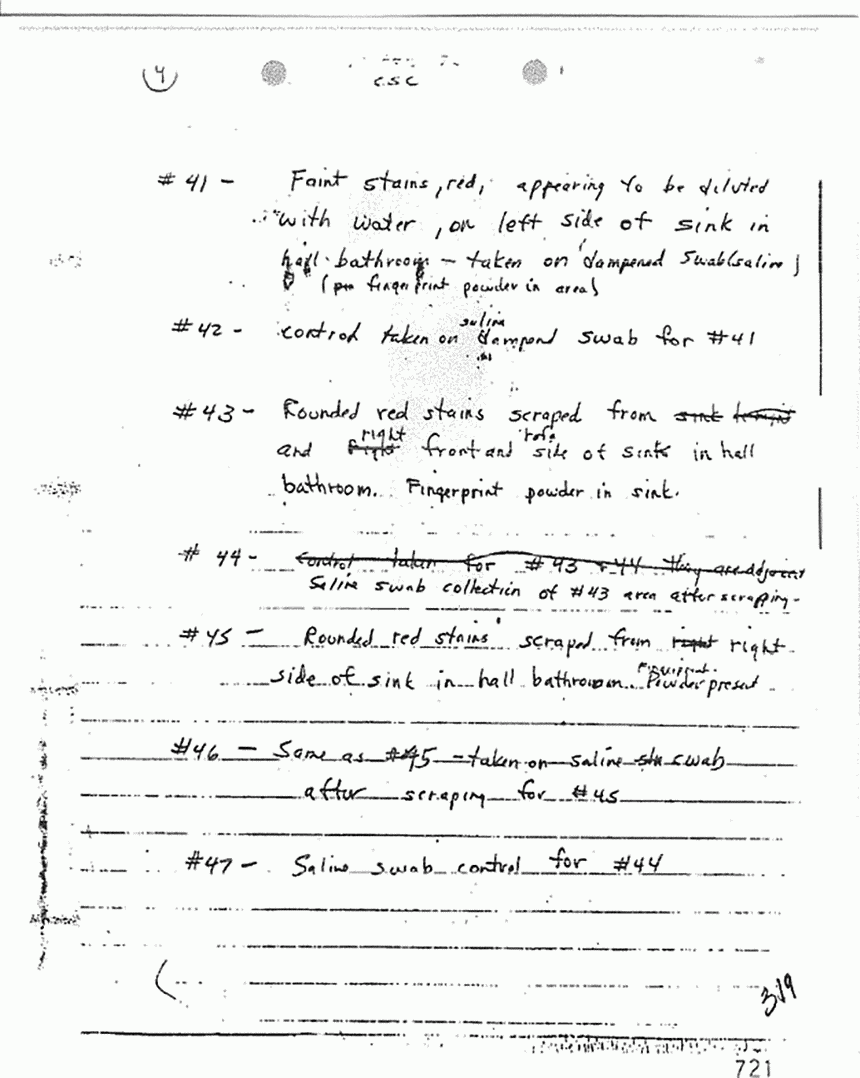 4
CSC
# 41 - Faint stains, red, appearing to be diluted
with water, on left side of sink in
hall bathroom - taken on dampened swab (saline)
( fingerprint powder in area)
# 42 - control taken on saline dampend swab for #41
# 43 - Rounded red stains scraped from sink
and right front and side of sinks in hall
bathroom. Fingerprint powder in sink.
# 44 - control taken for #43 + 44 they are adjacent
Saline swab collection of #43 area after scraping -
# 45 - Rounded red stains scraped from right right
side of sink in hall bathroom. Fingerprint Powder present
#46 - Same as #45 - taken on saline swab
after scraping for #45
#47 - Saline swab control for #44
319
721